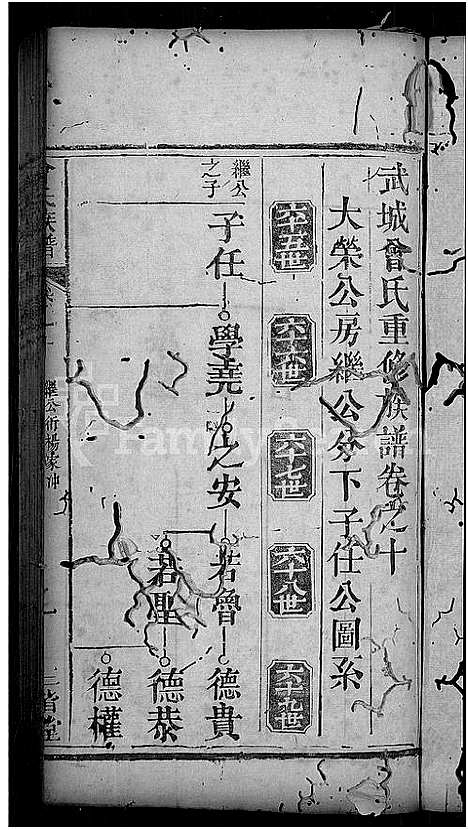 武城曾氏重修族譜卷之十
大榮公房繼公分下子任公圖系
六十五世
六十六世
六十七世
六十八世
六十九世
繼公之子
子任
學堯
之安
若魯
德貴
若聖
德恭
德權
繼公衍楊家沖
三省堂